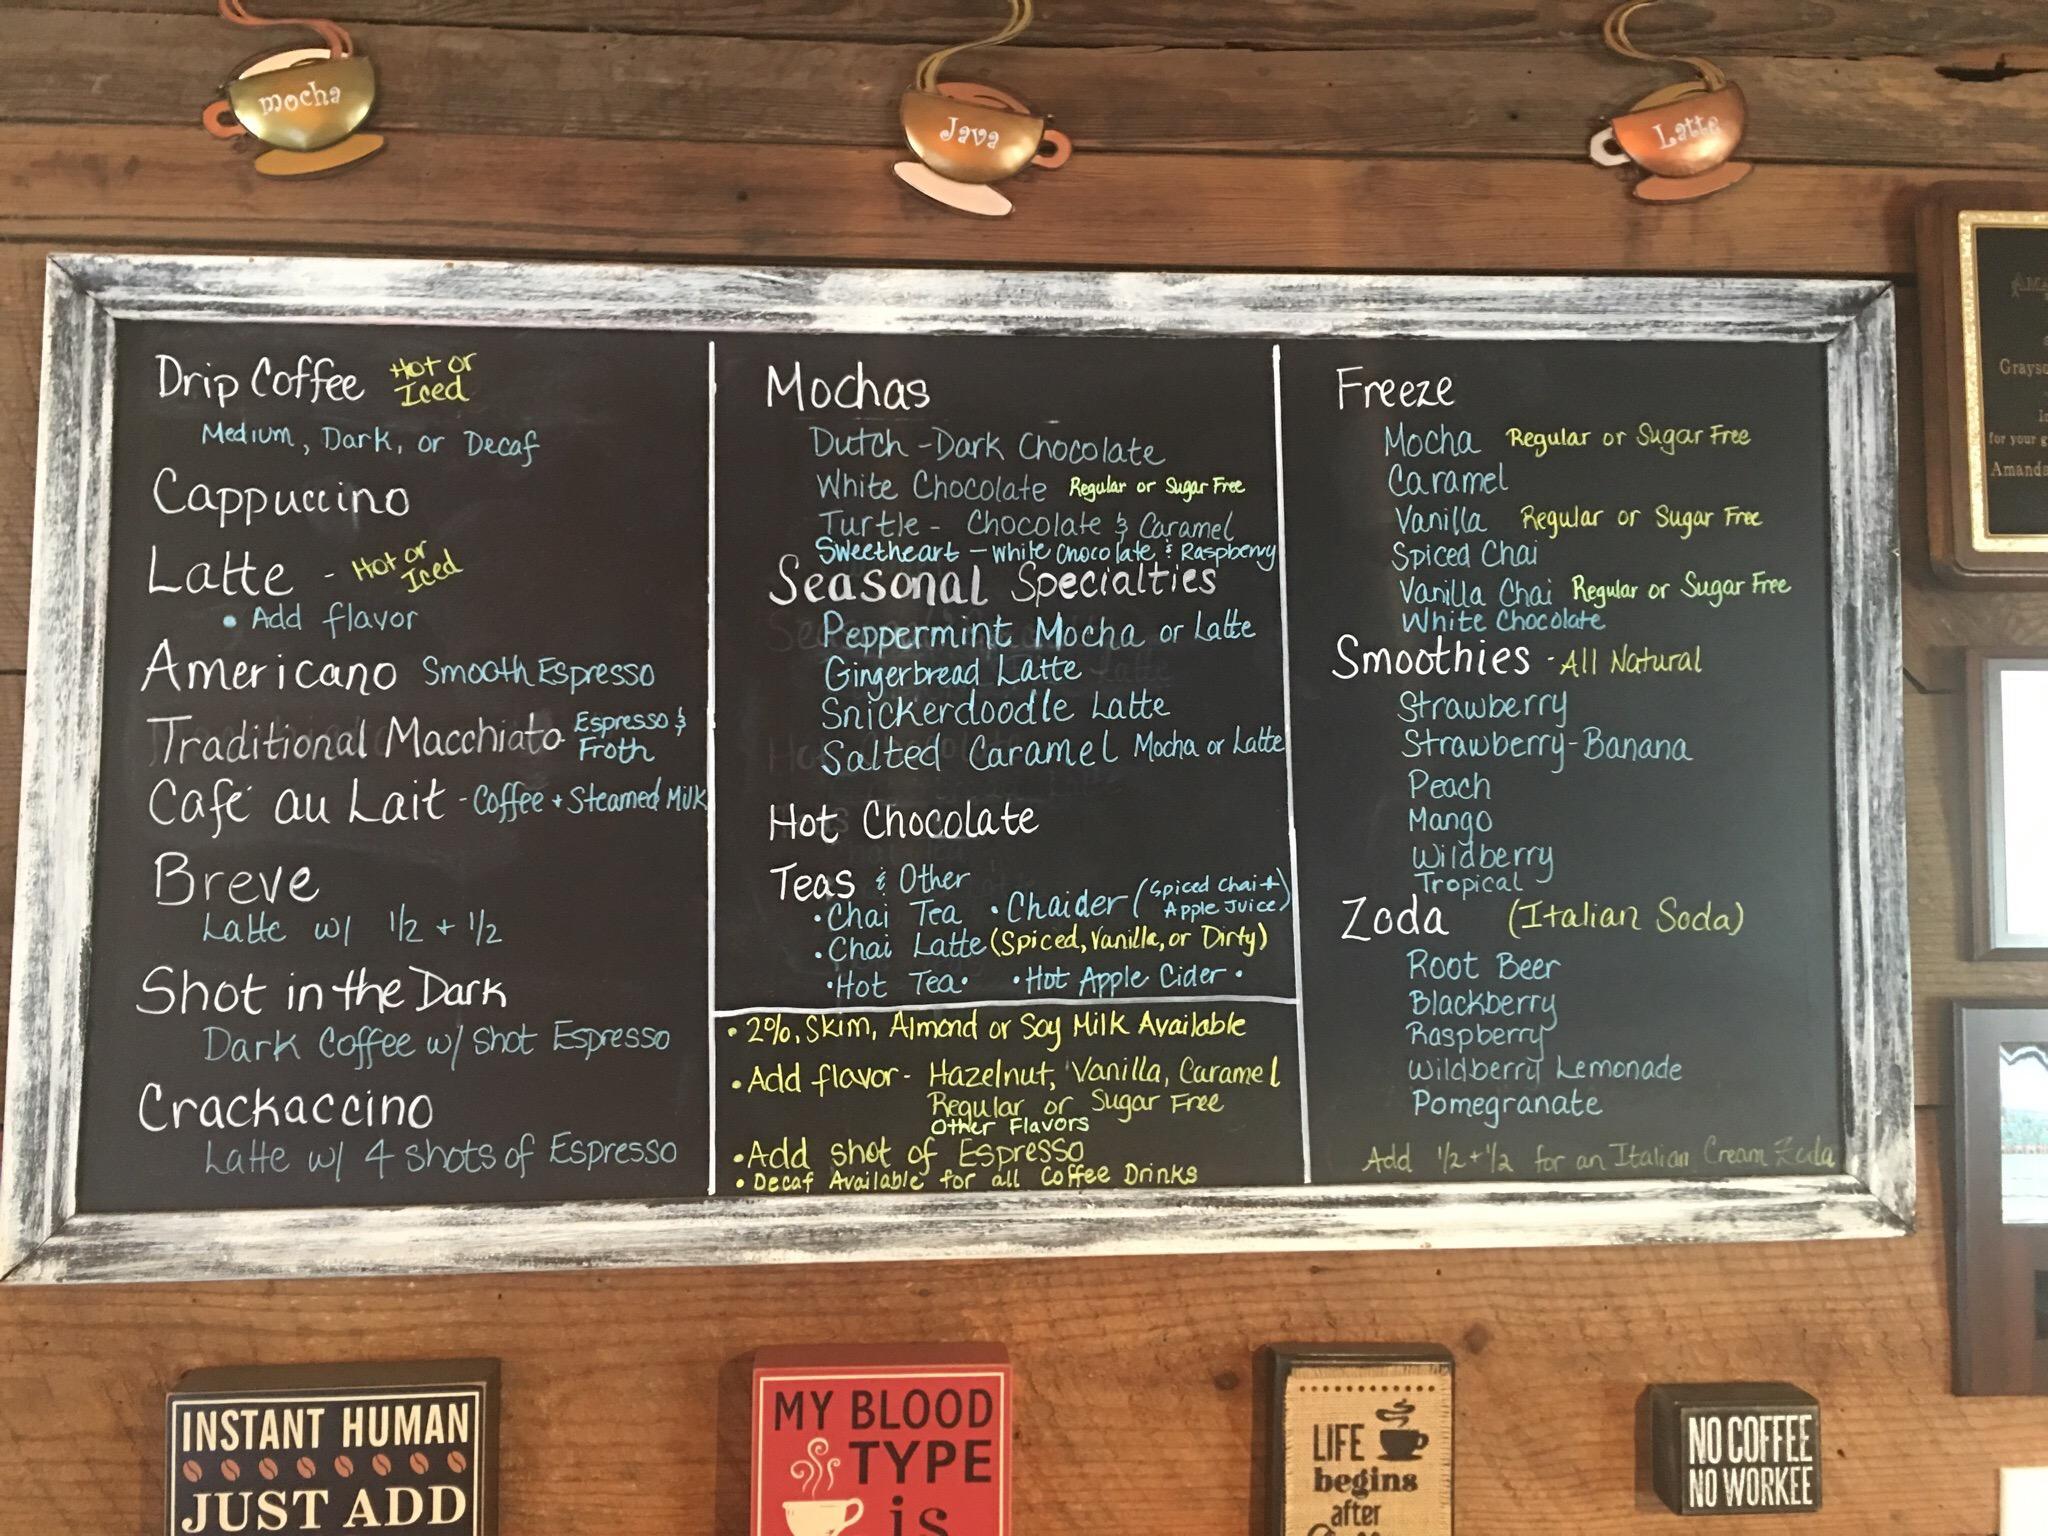 mocha
Java
Latte
Drip Coffee Hot or Iced
Medium, Dark, or Decaf
Cappuccino
Latte - Hot or Iced
• Add flavor
Americano Smooth Espresso
Traditional Macchiato Espresso & Froth
Café au Lait - Coffee + Steamed Milk
Breve
Latte w/ 1/2 + 1/2
Shot in the Dark
Dark Coffee w/ Shot Espresso
Crackaccino
Latte w/ 4 shots of Espresso
Mochas
Dutch - Dark Chocolate
White Chocolate Regular or Sugar Free
Turtle - Chocolate & Caramel
Sweetheart - White Chocolate & Raspberry
Seasonal Specialties
Peppermint Mocha or Latte
Gingerbread Latte
Snickerdoodle Latte
Salted Caramel Mocha or Latte
Hot Chocolate
Teas & Other
• Chai Tea • Chaider (Spiced Chai + Apple Juice)
• Chai Latte (Spiced, Vanilla, or Dirty)
• Hot Tea • • Hot Apple Cider •
• 2%, Skim, Almond or Soy Milk Available
• Add flavor - Hazelnut, Vanilla, Caramel
Regular or Sugar Free
Other Flavors
• Add shot of Espresso
• Decaf Available for all Coffee Drinks
Freeze
Mocha Regular or Sugar Free
Caramel
Vanilla Regular or Sugar Free
Spiced Chai
Vanilla Chai Regular or Sugar Free
White Chocolate
Smoothies - All Natural
Strawberry
Strawberry-Banana
Peach
Mango
Wildberry
Tropical
Zoda (Italian Soda)
Root Beer
Blackberry
Raspberry
Wildberry Lemonade
Pomegranate
Add 1/2 + 1/2 for an Italian Cream Zoda
for your
Amanda
INSTANT HUMAN
JUST ADD
MY BLOOD
TYPE
is
LIFE
begins
after
NO COFFEE
NO WORKEE